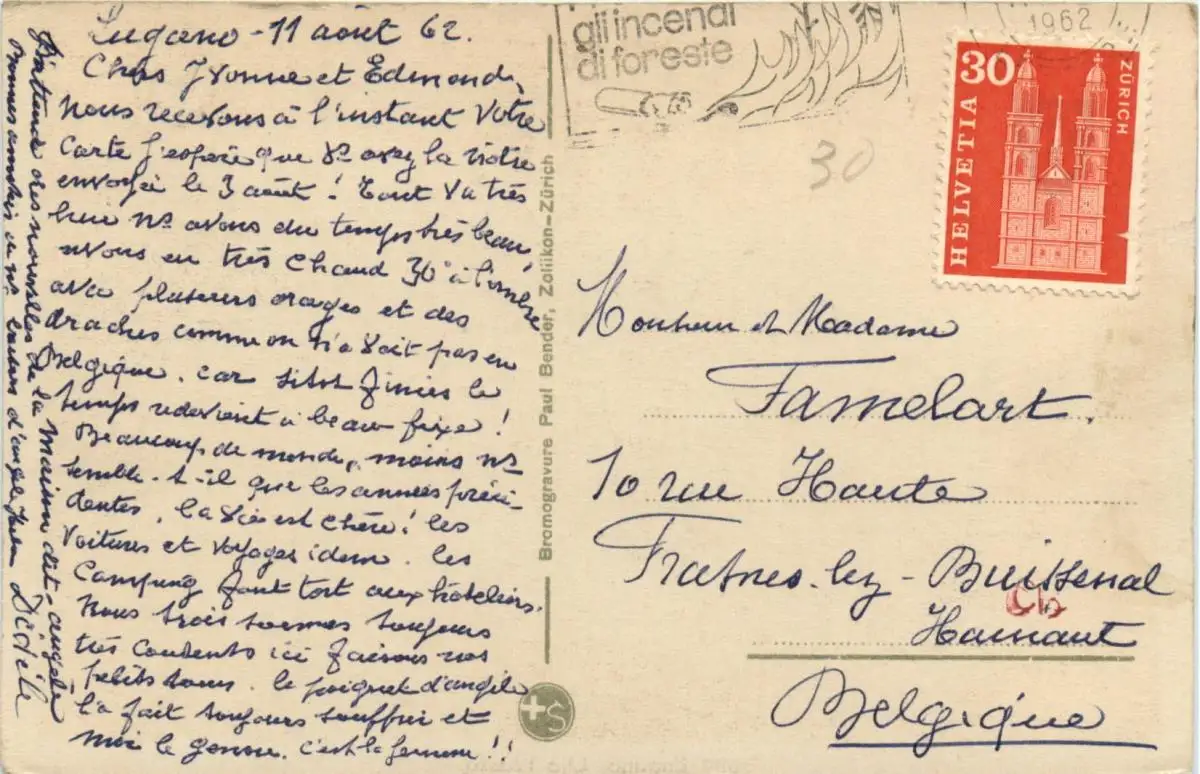 Lugano - 11 août 62.
Chers Yvonne et Edmond,
nous recevons à l'instant votre
carte j'espère que vs avez la nôtre
envoyée le 3 août ! Tout va très
bien ns avons du temps très beau,
avons eu très chaud 30° à l'ombre
avec plusieurs orages et des
draches comme on n'a soit pas en
Belgique. car sitôt finies le
temps redevient à beau fixe !
Beaucoup de monde, moins ns
semble-t-il que les années précé-
dentes. la vie est chère ! les
voitures et voyages idem. les
Camping font tort aux hôteliers.
Nous trois sommes toujours
très contents ici faisons nos
petits tours. le poignet d'angèle
l'a fait toujours souffrir et
moi le genou. c'est la femme !!
Attend des nouvelles de la Maison dit angèle
Bonnes amitiés de ns
Dédèle
gli incendi
di foreste
1962
30
HELVETIA
ZÜRICH
30
Bromogravure Paul Bender, Zollikon-Zürich
S
Monsieur et Madame
Famelart.
10 rue Haute
Frasnes-lez-Buissenal
Hainaut
Belgique